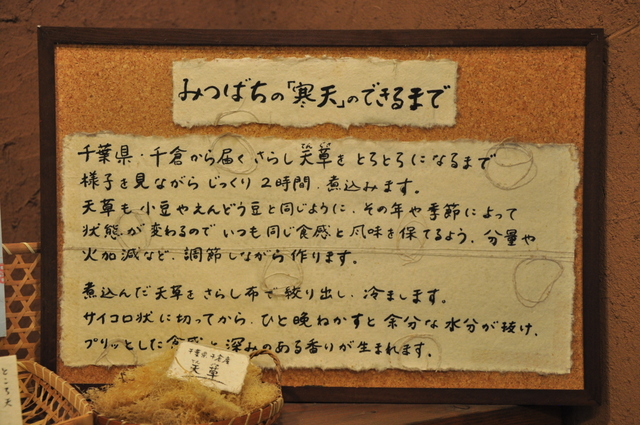 みつばちの「寒天」のできるまで
千葉県・千倉から届くさらし天草をとろとろになるまで
様子を見ながらじっくり2時間、煮込みます。
天草も小豆やえんどう豆と同じように、その年や季節によって
状態が変わるのでいつも同じ食感と風味を保てるよう、分量や
火加減など、調節しながら作ります。
煮込んだ天草をさらし布で絞り出し、冷まします。
サイコロ状に切ってから、ひと晩ねかすと余分な水分が抜け、
プリッとした食感と深みのある香りが生まれます。
千葉県千倉産
天草
ところ天